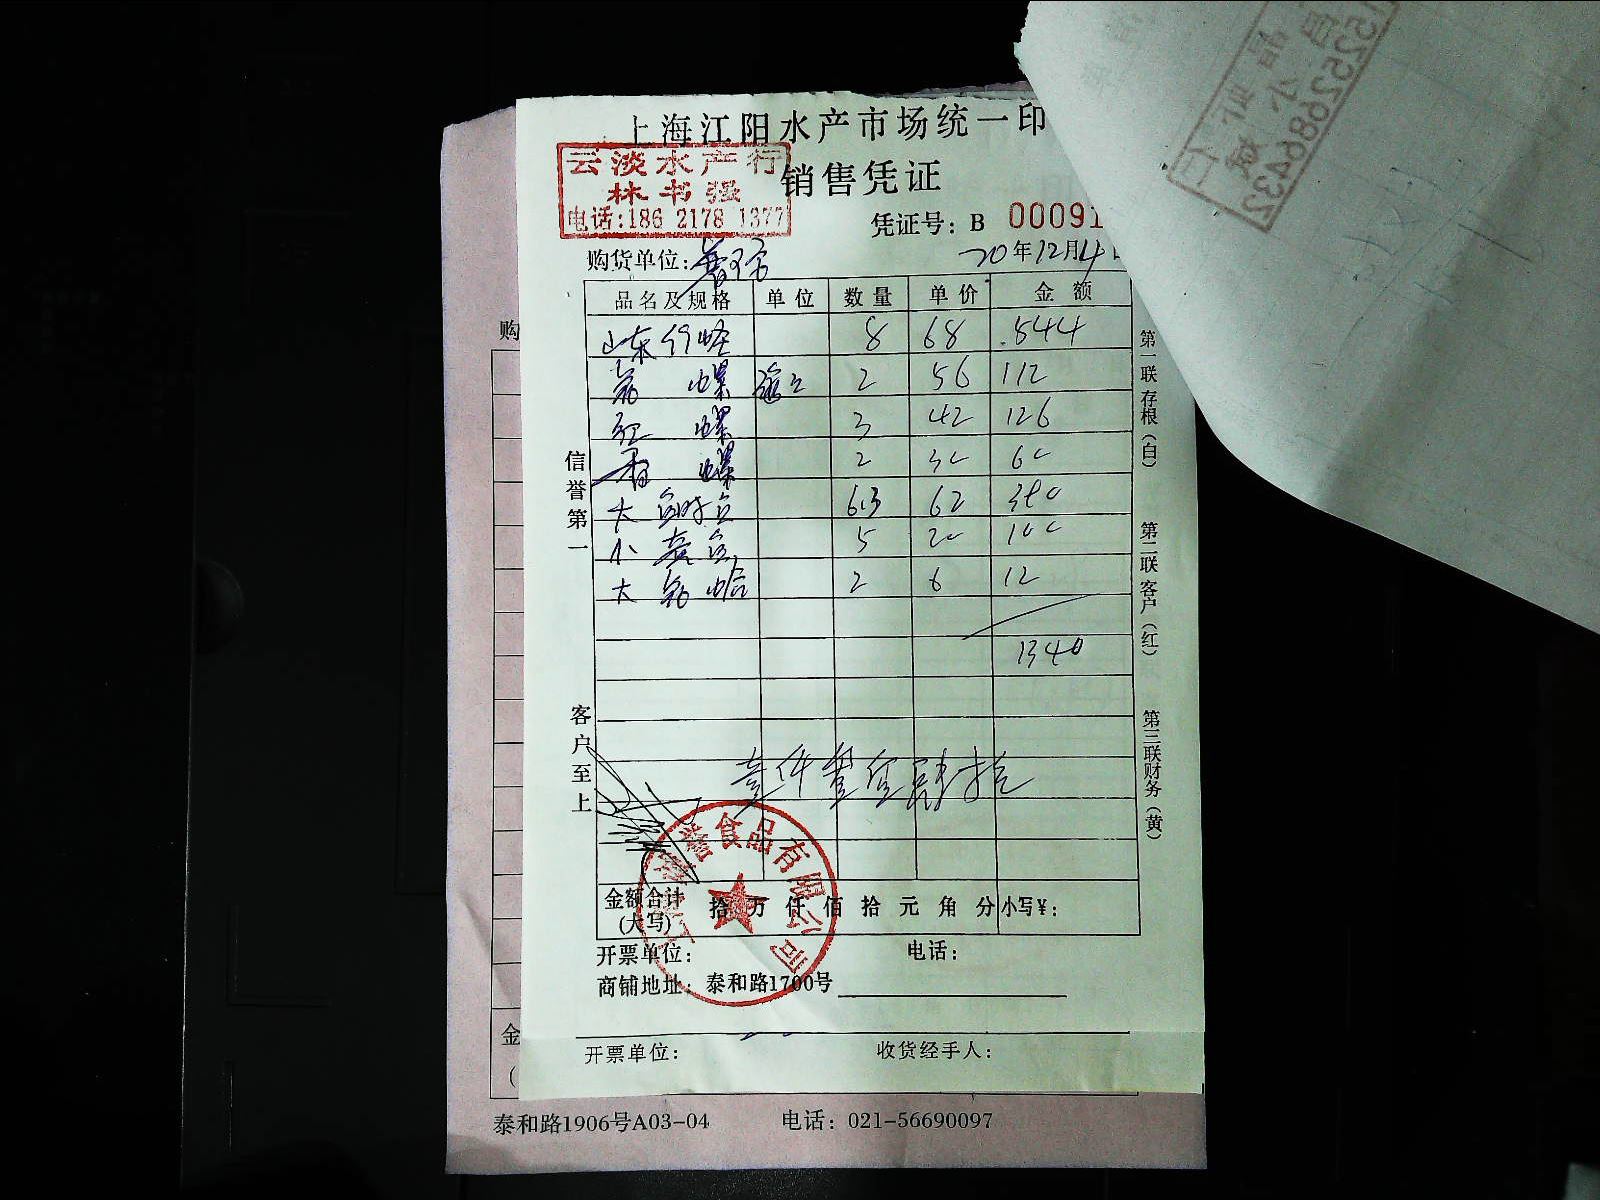 上海江阳水产市场统一印
云淡水产行
林书强
电话:186 2178 1377
销售凭证
凭证号: B 00091
购货单位:
20年12月4日
品名及规格 单位 数量 单价 金额
山东 8 68 544
螺 2 56 112
红螺 3 42 126
香螺 2 30 60
大 6.3 62 390
小 5 20 100
大 蛤 2 6 12
1340
壹仟叁佰肆拾
信誉第一
客户至上
第一联存根(白)
第二联客户(红)
第三联财务(黄)
誉食品有限公司
金额合计(大写) 拾 万 仟 佰 拾 元 角 分 小写¥:
开票单位: 电话:
商铺地址: 泰和路1700号
开票单位: 收货经手人:
购
金
(
泰和路1906号A03-04 电话: 021-56690097
15225286432